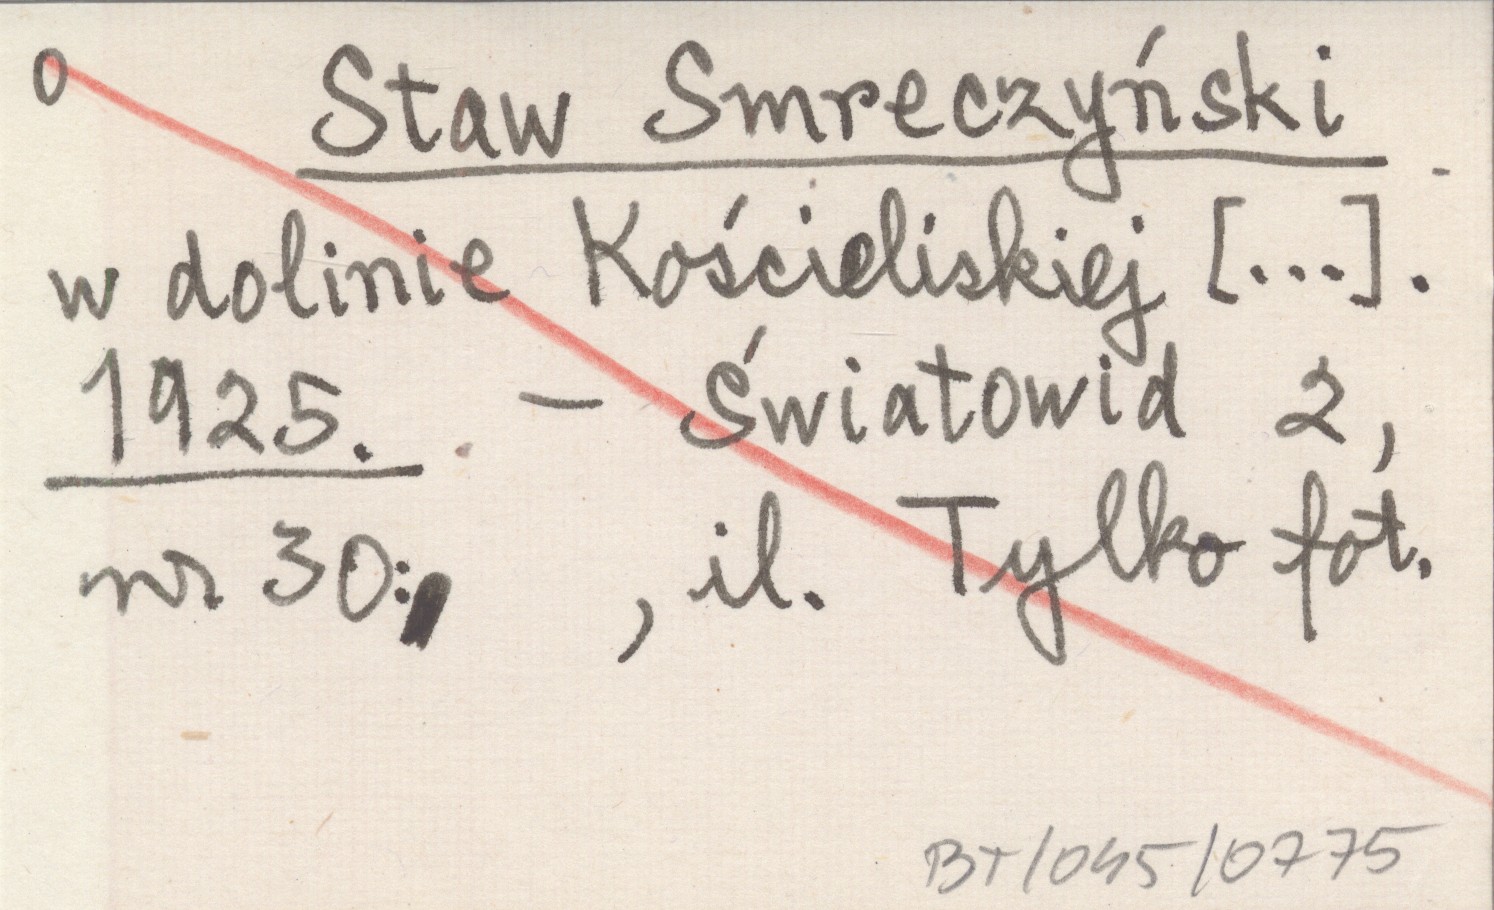 0 Staw Smreczyński
w dolinie Kościeliskiej [...].
1925. - Światowid 2,
nr 30: , il. Tylko fot.
BT/045/0775